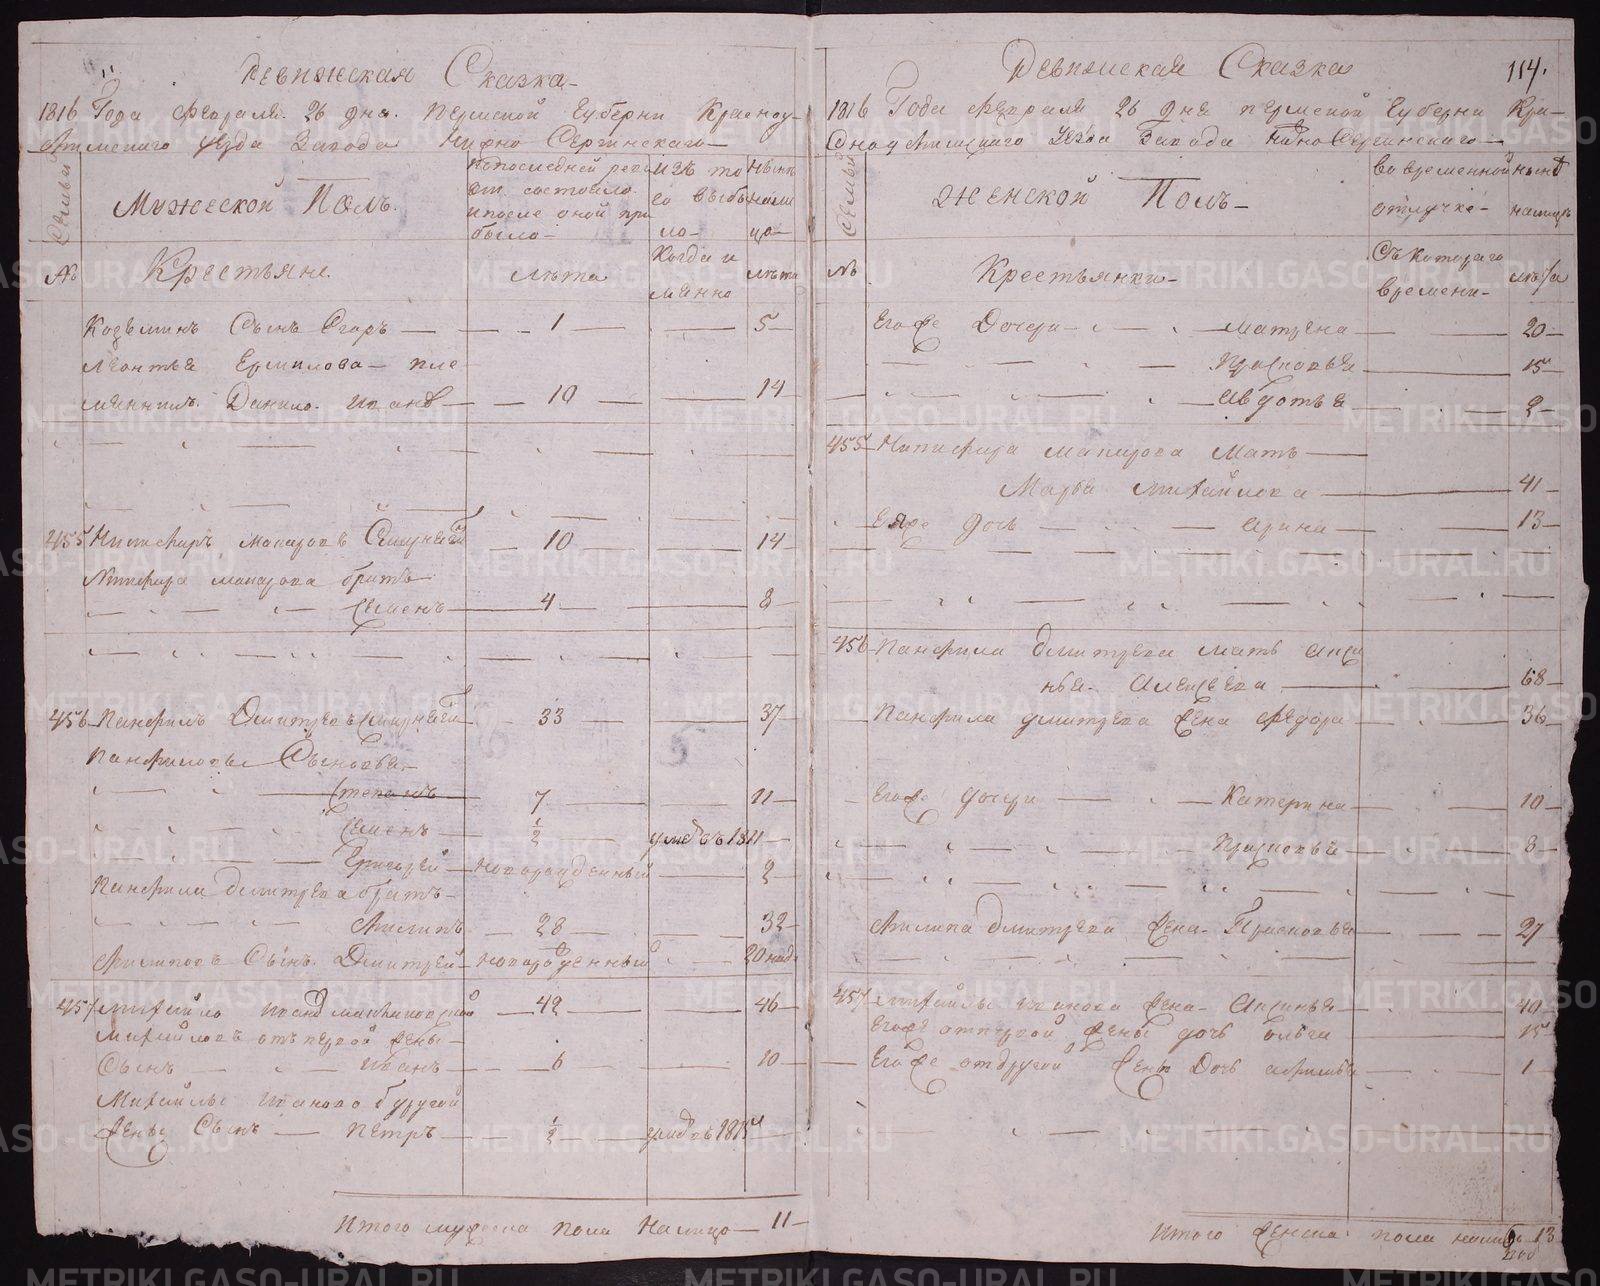 Ревижская Сказка
1816 Года Февраля 26 дня. Пермской Губерни Красноу-
фимскаго уезда Завода Нижно Сергинскаго
Семьи
Мужеской Полъ.
По последней реви
зи состояло
и после оной при
было
изъ то
го выбы
ло
ныне
нали
цо
№
Крестьяне
лета
Когда и
имянно
лета
Козьминъ Сынъ Егоръ 1 5
Леонтья Ермилова пле
мянникъ Данило Иванов 10 14
455 Никифоръ Макаровъ 10 14
Никифора Макарова братъ
Семенъ 4 8
456 Панфилъ Дмитревъ 33 37
Панфиловы Сыновья
Степанъ 7 11
Семенъ 1/2 умре въ 1811
Григорей новорожденный 2
Панфила Дмитрева братъ
Филипъ 28 32
Филиповъ Сынъ Дмитрей новорожденный 20 нед
457 Михайло Иванов 42 46
Михайловъ отъ первой жены
Сынъ Иванъ 6 10
Михайлы Иванова б другой
жены Сынъ Петръ 1/2
Итого мужеска пола Налицо 11
Ревижская Сказка
114.
1816 Года Февраля 26 дня Пермской Губерни Кра-
сноуфимскаго Уезда Завода Нижно Сергинскаго
Семьи
Женской Полъ
во временной
отлучке
ныне
налицо
№
Крестьянки
Съ котораго
времени
лета
Его же Дочери Матрена 20
Прасковья 15
Авдотья 2
455 Никифора Макарова Мать
Марфа Михайлова 41
Ея же дочь Арина 13
456 Панфила Дмитрева мать Акси
нья Алексеева 68
Панфила Дмитрева жена Федора 36
Его же дочери Катерина 10
Прасковья 8
Филипа Дмитрева жена Прасковья 27
457 Михайлы Иванова жена Аксинья 40
Его же от первой жены дочь Ольга 15
Его же от другой жены Дочь Афимья 1
Итого женска пола налицо 13
METRIKI.GASO-URAL.RU